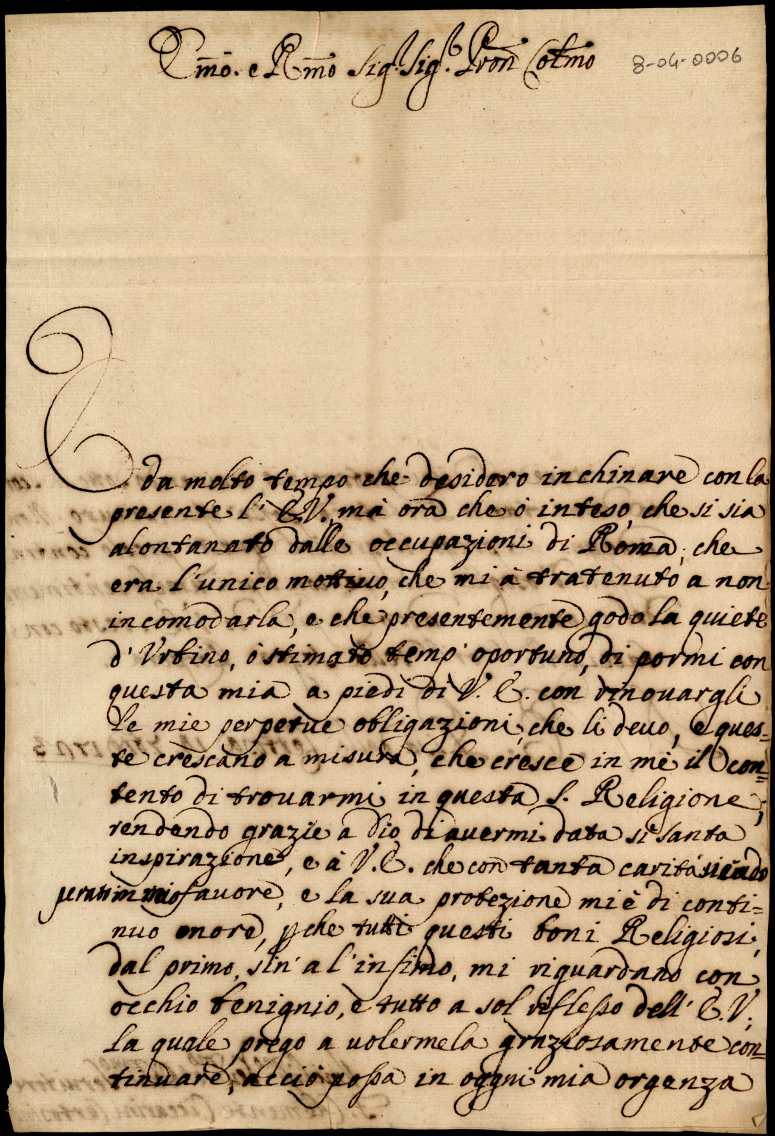 Em̃o. e Rm̃o Sig.r Sig.r Pron̄ Col̃mo
8-04-0006
E da molto tempo che desidero inchinare con la
presente l'E.V., mà ora che ò inteso, che si sia
alontanato dalle occupazioni di Roma, che
era l'unico mottivo, che mi à tratenuto a non
incomodarla, e che presentemente godo la quiete
d'Urbino, ò stimato temp'oportuno, di pormi con
questa mia a piedi di V.E. con rinovargli
le mie perpetue obligazioni, che li devo, e ques=
te crescano a misura, che cresce in me il con=
tento di trovarmi in questa S. Religione;
rendendo grazie a Dio di avermi data si santa
inspirazione, e à V.E. che con tanta carità si è ado
perato in mio favore, e la sua protezione mi è di conti=
nuo onore, p che tutti questi boni Religiosi,
dal primo, sin'a l'infimo, mi riguardano con
occhio benignio, e tutto a sol riflesso dell'E.V.,
la quale prego a volermela graziosamente con=
tinuare, acciò possa in oggni mia orgenza